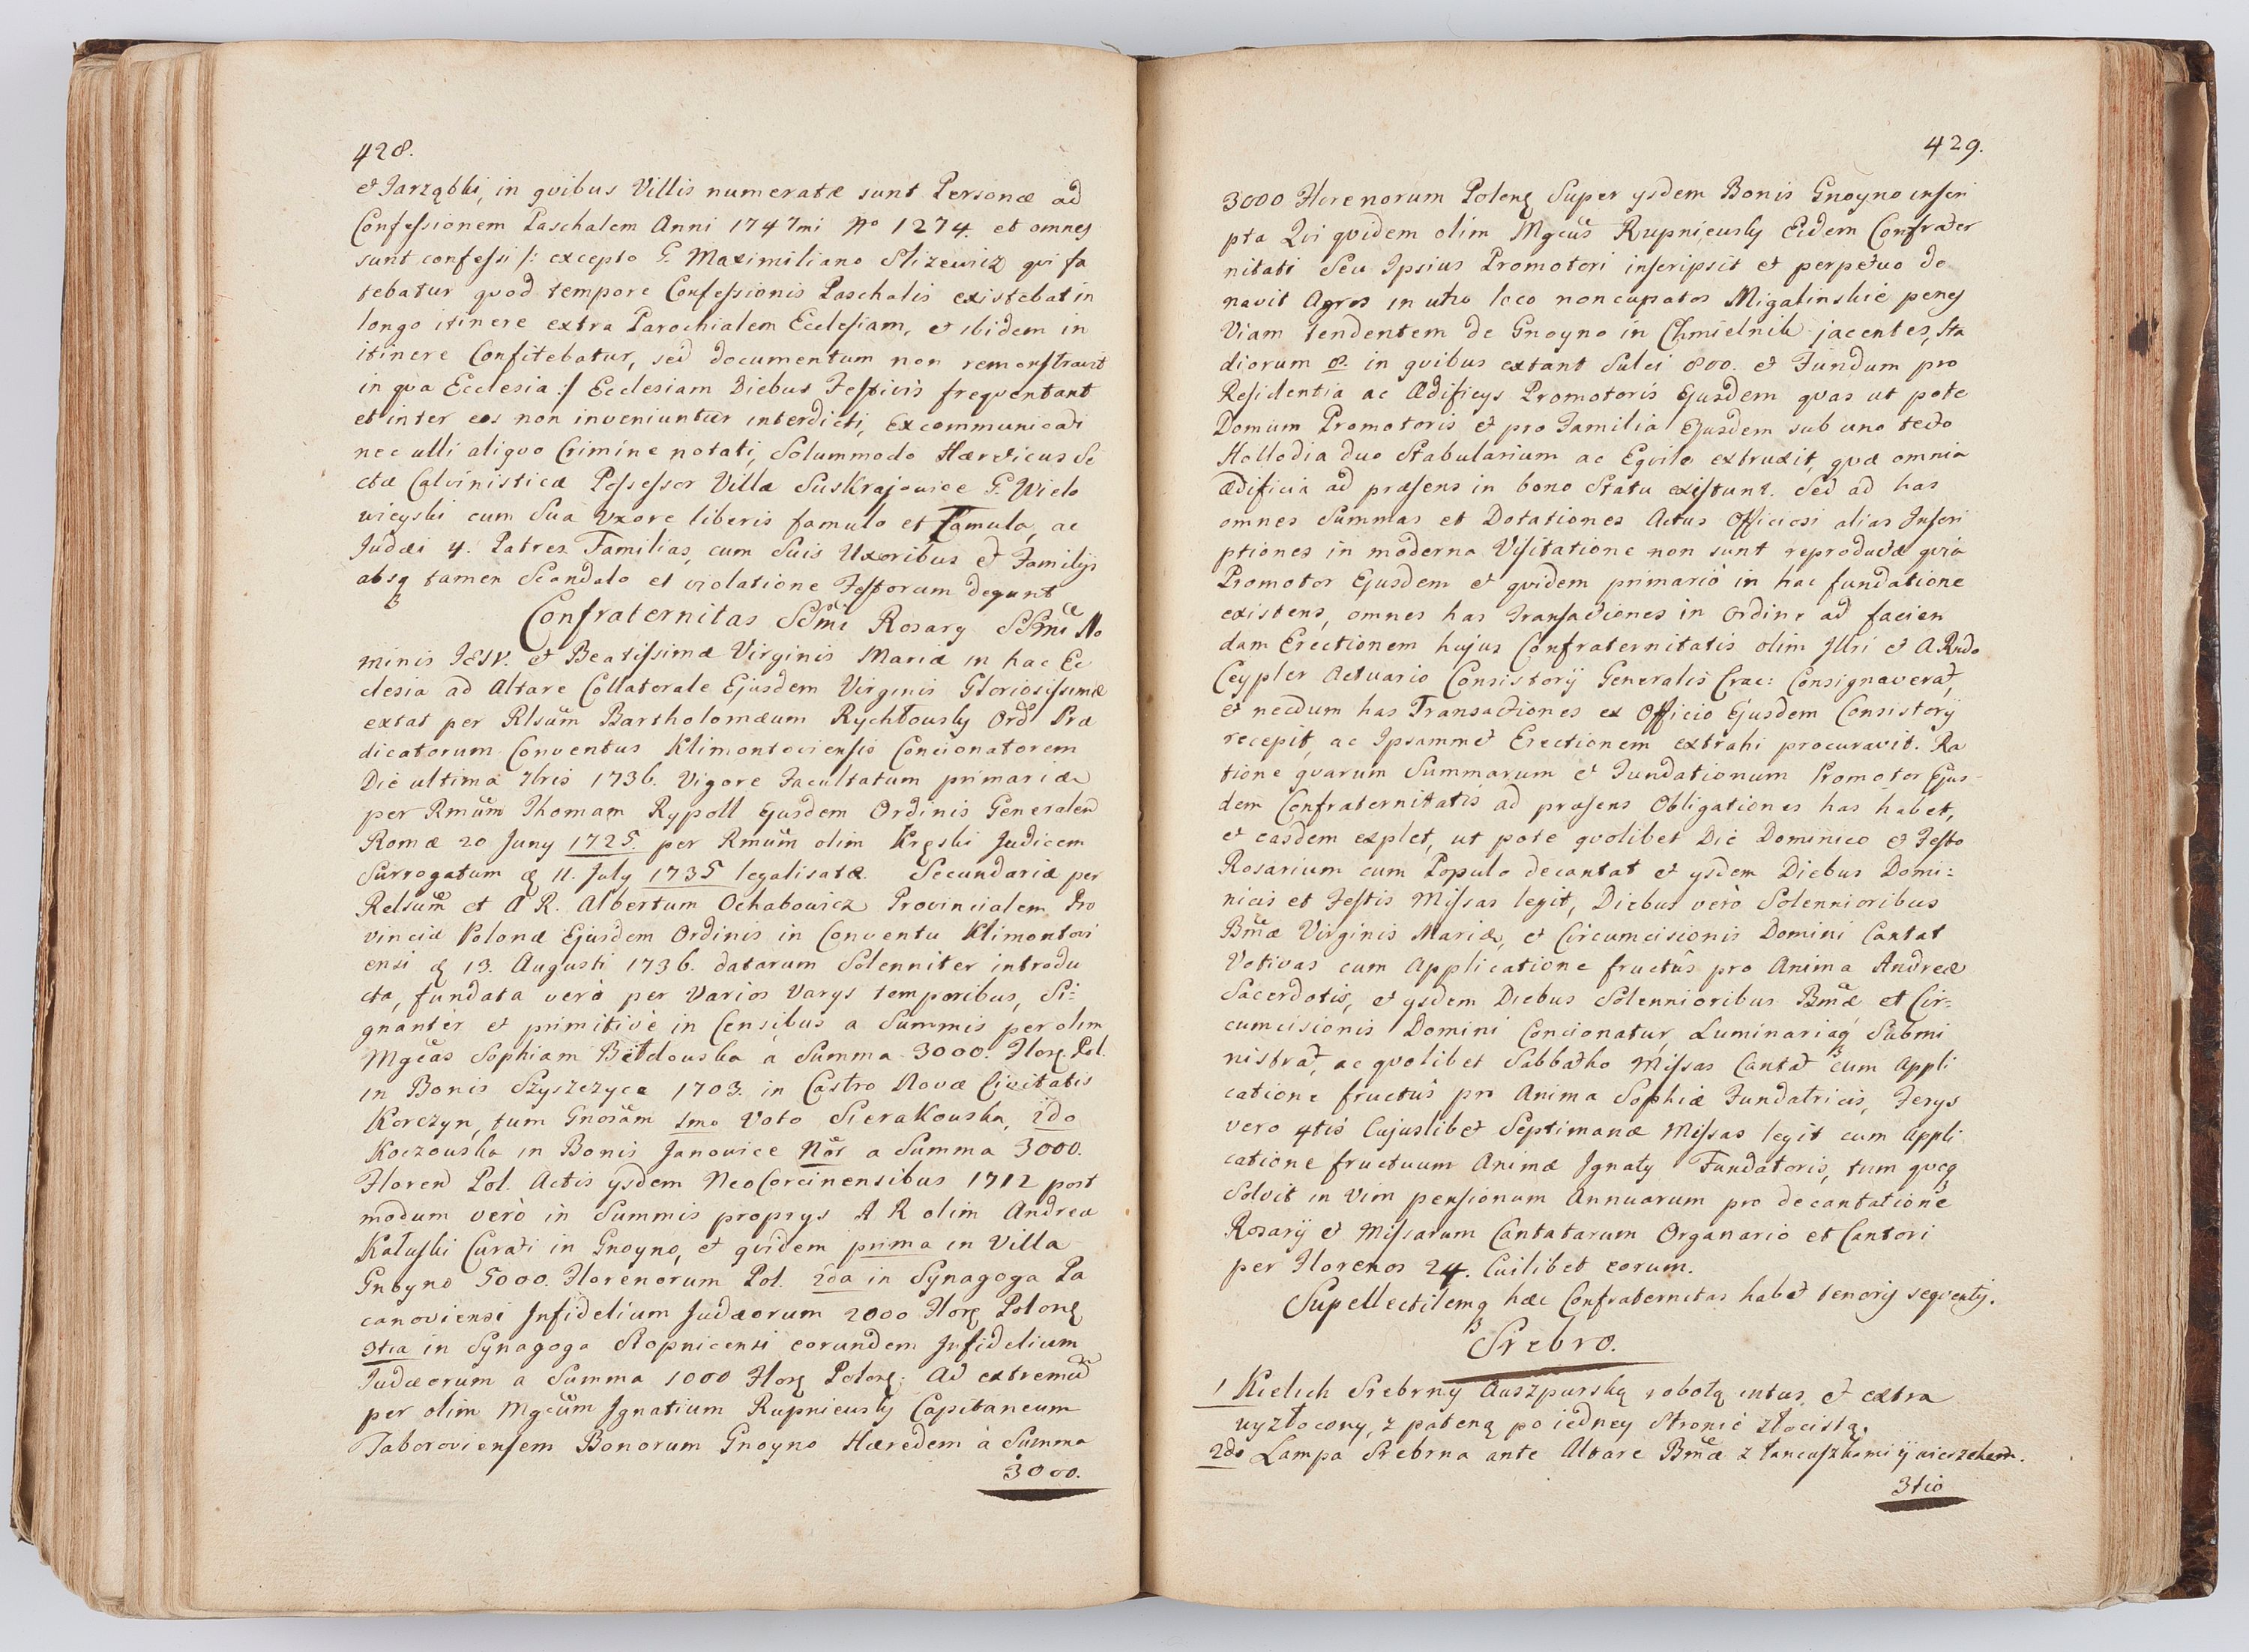 428.
et Jarząbki, in qvibus Villis numeratæ sunt Personæ ad
Confessionem Paschalem Anni 1747mi No 1274. et omnes
sunt confessi /: excepto G. Maximiliano Slizewicz qvi fa
tebatur qvod tempore Confessionis Paschalis existebat in
longo itinere extra Parochialem Ecclesiam, et ibidem in
itinere Confitebatur, sed documentum non remonstravit
in qva Ecclesia :/ Ecclesiam Diebus Festivis freqventant
et inter eos non inveniuntur interdicti, Excommunicati
nec ulli aliqvo Crimine notati, Solummodo Hæreticus Se
ctæ Calvinisticæ Possessor Villæ Suskrajowice G. Wielo
wieyski cum Sua Uxore liberis famulo et Famula, ac
Judæi 4. Patres Familias, cum Suis Uxoribus et Familijs
absq tamen Scandalo et violatione Festorum degunt
Confraternitas SSmi Rosary SSmi No
minis JESV. et Beatissimæ Virginis Mariæ in hac Ec
clesia ad Altare Collaterale Ejusdem Virginis Gloriosissimæ
extat per Rlsum Bartholomæum Rychłowsky Ord Præ
dicatorum Conventus Klimontoviensis Concionatorem
Die ultima 7bris 1736. Vigore Facultatum primariæ
per Rmum Thomam Rypoll Ejusdem Ordinis Generalem
Romæ 20 Juny 1725. per Rmum olim Kręski Judicem
Surrogatum 11. July 1735 legalisatæ. Secundariæ per
Relsum et A R. Albertum Ochabowicz Provincialem Pro
vinciæ Polonæ Ejusdem Ordinis in Conventu Klimontovi
ensi 13. Augusti 1736. datarum Solenniter introdu
cta, fundata verò per Varios Varys temporibus, Si=
gnantèr et primitivè in Censibus a Summis per olim
Mgcas Sophiam Bełdowska a Summa 3000. Flor Pol.
in Bonis Szyszczyce 1703. in Castro Novæ Civitatis
Korczyn, tum Gnosam 1mo Voto Sierakowska, 2do
Koczowska in Bonis Janowice Nor a Summa 3000.
Floren Pol. Actis ysdem NeoCorcinensibus 1712 post
modum verò in Summis proprys A R olim Andrea
Kałuski Curati in Gnoyno, et qvidem prima in Villa
Gnoyno 5000. Florenorum Pol. 2da in Synagoga Pa
canoviensi Infidelium Judæorum 2000 Flor Polon
3tia in Synagoga Stopnicensi eorundem Infidelium
Judæorum a Summa 1000 Flor Polon: Ad extremum
per olim Mgcum Ignatium Rupniewsky Capitaneum
Taboroviensem Bonorum Gnoyno Hæredem à Summa
3000.
429.
3000 Florenorum Polon Super ysdem Bonis Gnoyno inscri
pta Qvi qvidem olim Mgcus Rupniewsky Eidem Confrater
nitati Seu Ipsius Promotori inscripsit et perpetuo do
navit Agros in utro loco noncupatos Migalinskie penes
Viam tendentem de Gnoyno in Chmielnik jacentes, Sta
diorum 8. in qvibus extant Sulci 800. et Fundum pro
Residentia ac Ædificys Promotoris Ejusdem qvas ut pote
Domum Promotoris et pro Familia Ejusdem sub uno tecto
Hollodia duo Stabularium ac Eqvile extruxit, qvæ omnia
Ædificia ad præsens in bono Statu existunt. Sed ad has
omnes Summas et Dotationes Actus Officiosi alias Inscri
ptiones in moderna Visitatione non sunt reproductæ qvia
Promotor Ejusdem et qvidem primariò in hac fundatione
existens, omnes has Transactiones in Ordine ad facien
dam Erectionem hujus Confraternitatis olim Illri et A Rndo
Ceypler Actuario Consistorÿ Generalis Crac: Consignaverat,
et necdum has Transactiones ex Officio Ejusdem Consistorÿ
recepit, ac Ipsammet Erectionem extrahi procuravit. Ra
tione qvarum Summarum et Fundationum Promotor Ejus-
dem Confraternitatis ad præsens Obligationes has habet,
et easdem explet, ut pote qvolibet Die Dominico et Festo
Rosarium cum Populo decantat et ysdem Diebus Domi:
nicis et Festis Missas legit, Diebus verò Solennioribus
Bmæ Virginis Mariæ, et Circumcisionis Domini Cantat
Votivas cum Applicatione fructûs pro Anima Andreæ
Sacerdotis, et ysdem Diebus Solennioribus Bmæ et Cir=
cumcisionis Domini Concionatur, Luminariaq Submi
nistrat, ac qvolibet Sabbatho Missas Cantat cum Appli
catione fructus pro Anima Sophiæ Fundatricis, Ferys
vero 4tis Cujuslibet Septimanæ Missas legit cum Appli
catione fructuum Animæ Ignaty Fundatoris, tum qvoq
Solvit in vim pensionum Annuarum pro decantatione
Rosarÿ et Missarum Cantatarum Organario et Cantori
per Florenos 24. Cuilibet eorum.
Supellectilemq hæc Confraternitas habet tenoris seqventis.
Srebro.
1 Kielich Srebrny Auszpurską robotą intus et extra
wyzłocony, z pateną po iedney Stronie złocistą.
2do Lampa Srebrna ante Altare Bmæ z łancuszkami ÿ wierzchem.
3tio